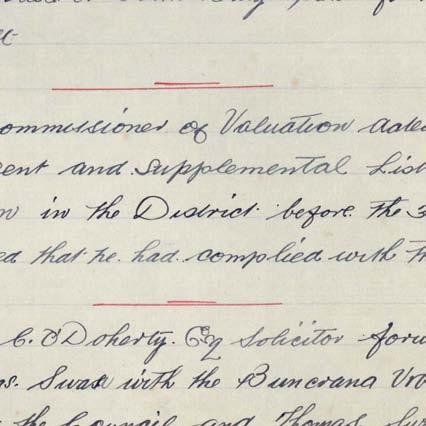 ommissioner of Valuation dated
ent and Supplemental List
in the District before the 3
ed that he had complied with th
C. O'Doherty. Esq Solicitor forw
ns. Swan with the Buncrana Urb
the Council and Thomas